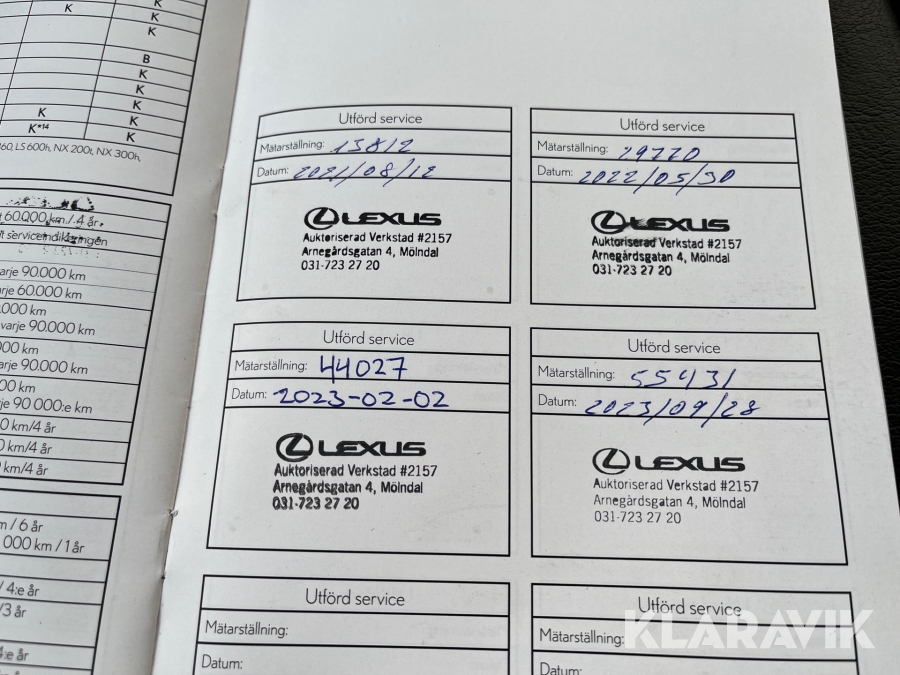 K
K
K
B
K
K
K
K
K
K*14
K
360, LS 600h, NX 200t, NX 300h,
60.000 km / 4 år,
serviceindikeringen
varje 90.000 km
varje 60.000 km
.000 km
varje 90.000 km
000 km
varje 90.000 km
00 km
varje 90 000:e km
0 km/4 år
0 km/4 år
km/4 år
m / 6 år
000 km / 1 år
/ 4:e år
/3 år
4:e år
4:e år
Utförd service
Mätarställning: 13812
Datum: 2021/08/12
LEXUS
Auktoriserad Verkstad #2157
Arnegårdsgatan 4, Mölndal
031-723 27 20
Utförd service
Mätarställning: 29220
Datum: 2022/05/30
LEXUS
Auktoriserad Verkstad #2157
Arnegårdsgatan 4, Mölndal
031-723 27 20
Utförd service
Mätarställning: 44027
Datum: 2023-02-02
LEXUS
Auktoriserad Verkstad #2157
Arnegårdsgatan 4, Mölndal
031-723 27 20
Utförd service
Mätarställning: 55431
Datum: 2023/09/28
LEXUS
Auktoriserad Verkstad #2157
Arnegårdsgatan 4, Mölndal
031-723 27 20
Utförd service
Mätarställning:
Datum:
Utförd service
Mätarställning:
Datum:
KLARAVIK